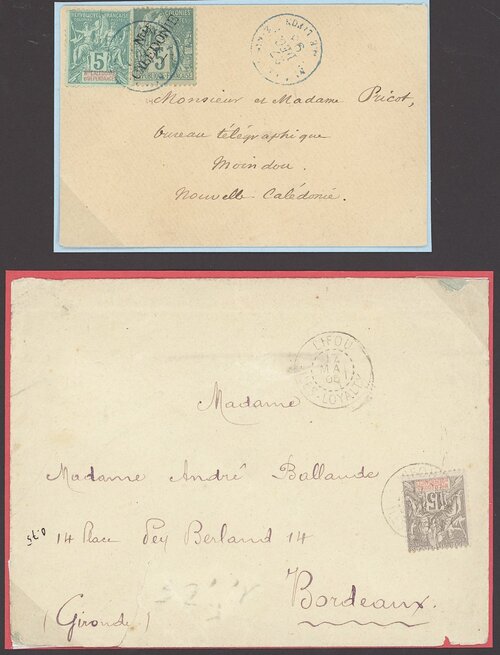 RÉPUBLIQUE FRANÇAISE
5
5
COLONIES
CALÉDONIE
Monsieur et Madame Pricot,
bureau télégraphique
Moindou.
Nouvelle Calédonie.
LIFOU
17
MAI
LOYALTY
Madame
Madame André Ballande
14 Place Pey Berland 14
Bordeaux.
(Gironde)
15